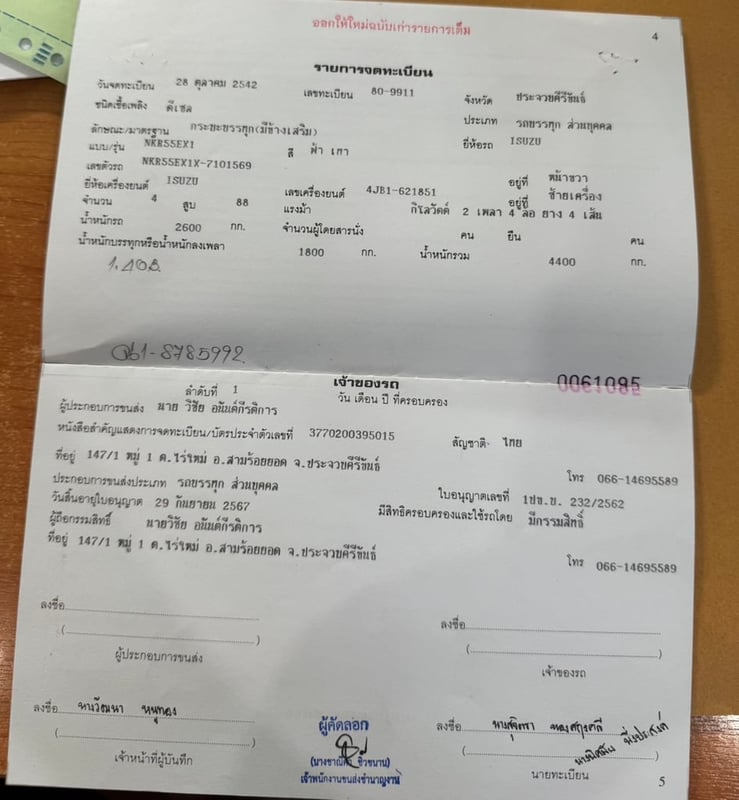 ออกให้ใหม่ฉบับเก่ารายการเต็ม
4
รายการจดทะเบียน
วันจดทะเบียน 28 ตุลาคม 2542 เลขทะเบียน 80-9911 จังหวัด ประจวบคีรีขันธ์
ชนิดเชื้อเพลิง ดีเซล ประเภท รถบรรทุก ส่วนบุคคล
ลักษณะ/มาตรฐาน กระบะบรรทุก(มีข้างเสริม) ยี่ห้อรถ ISUZU
แบบ/รุ่น NKR55EX1 สี ฟ้า เทา
เลขตัวรถ NKR55EX1X-7101569 อยู่ที่ หน้าขวา
ยี่ห้อเครื่องยนต์ ISUZU เลขเครื่องยนต์ 4JB1-621851 อยู่ที่ ซ้ายเครื่อง
จำนวน 4 สูบ 88 แรงม้า กิโลวัตต์ 2 เพลา 4 ล้อ ยาง 4 เส้น
น้ำหนักรถ 2600 กก. จำนวนผู้โดยสารนั่ง คน ยืน คน
น้ำหนักบรรทุกหรือน้ำหนักลงเพลา 1800 กก. น้ำหนักรวม 4400 กก.
061-8785992
0061095
เจ้าของรถ
ลำดับที่ 1 วัน เดือน ปี ที่ครอบครอง
ผู้ประกอบการขนส่ง นาย วิชัย อนันต์กีรติการ
หนังสือสำคัญแสดงการจดทะเบียน/บัตรประจำตัวเลขที่ 3770200395015 สัญชาติ ไทย
ที่อยู่ 147/1 หมู่ 1 ต.ไร่ใหม่ อ.สามร้อยยอด จ.ประจวบคีรีขันธ์ โทร 066-14695589
ประกอบการขนส่งประเภท รถบรรทุก ส่วนบุคคล ใบอนุญาตเลขที่ 1ปข.บ. 232/2562
วันสิ้นอายุใบอนุญาต 29 กันยายน 2567 มีสิทธิครอบครองและใช้รถโดย มีกรรมสิทธิ์
ผู้ถือกรรมสิทธิ์ นายวิชัย อนันต์กีรติการ
ที่อยู่ 147/1 หมู่ 1 ต.ไร่ใหม่ อ.สามร้อยยอด จ.ประจวบคีรีขันธ์ โทร 066-14695589
ลงชื่อ ลงชื่อ
( ) ( )
ผู้ประกอบการขนส่ง เจ้าของรถ
ลงชื่อ ผู้คัดลอก ลงชื่อ
เจ้าพนักงานขนส่งชำนาญงาน
เจ้าหน้าที่ผู้บันทึก นายทะเบียน
5